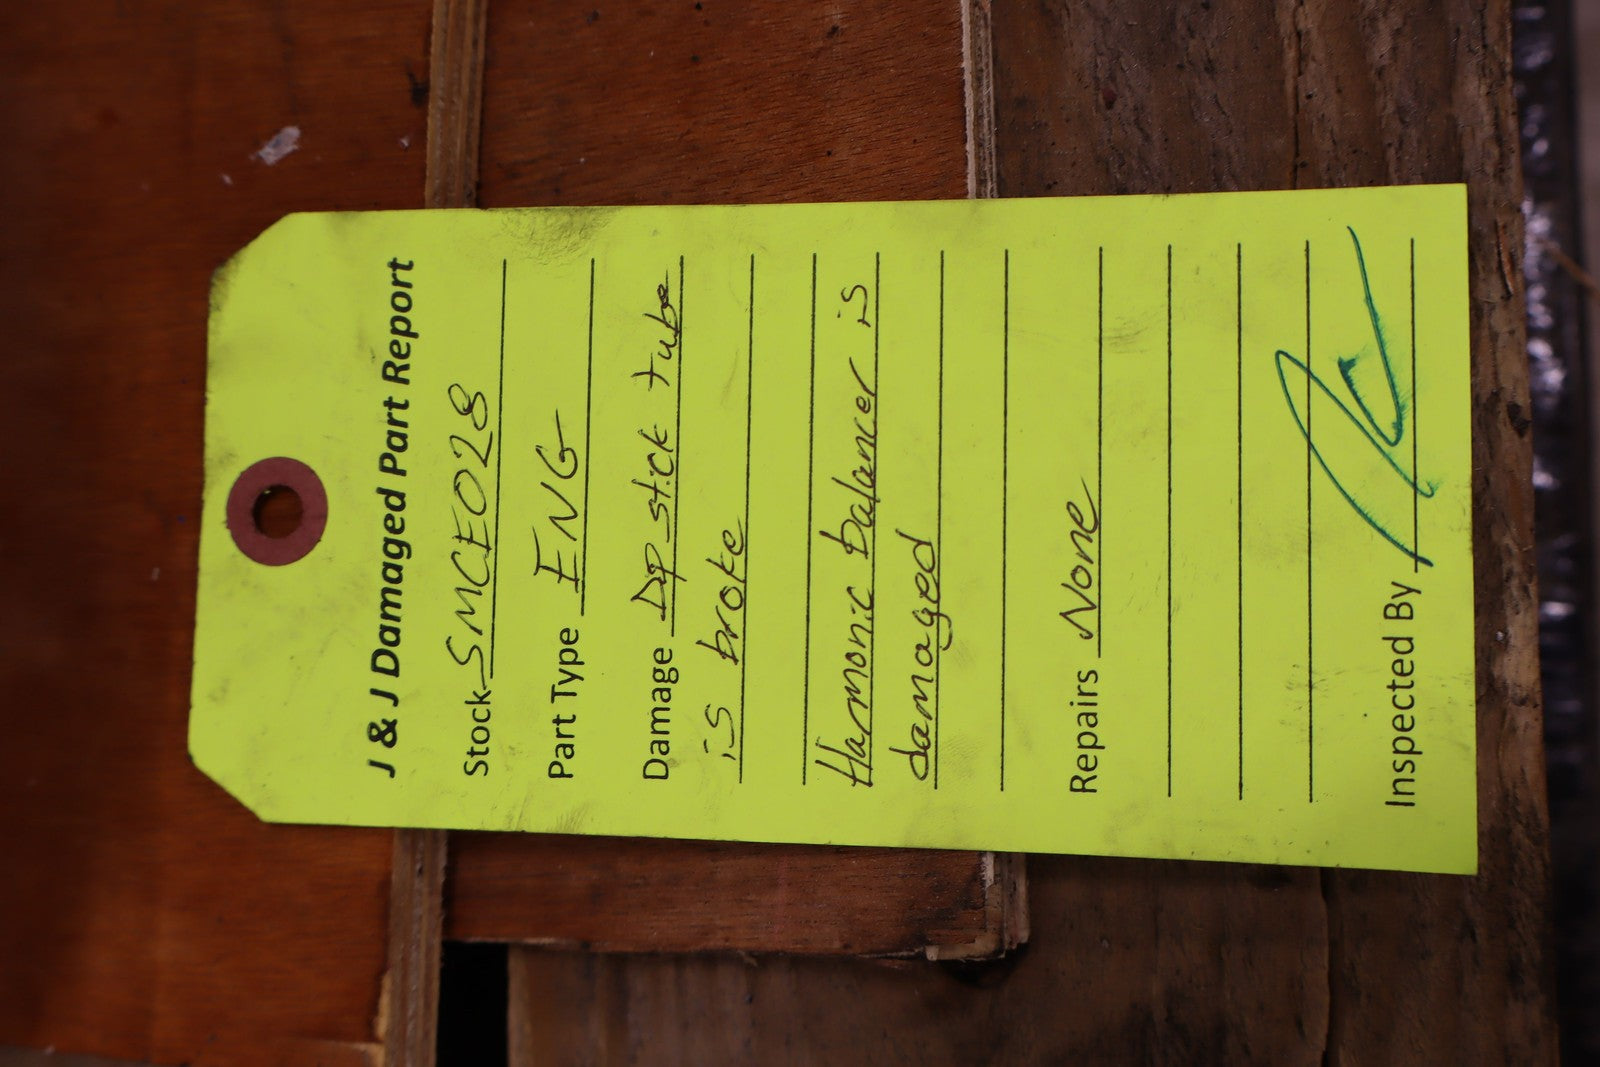 J & J Damaged Part Report
Stock SMCE028
Part Type ENG
Damage Dip stick tube
is broke
Harmonic balancer is
damaged
Repairs None
Inspected By